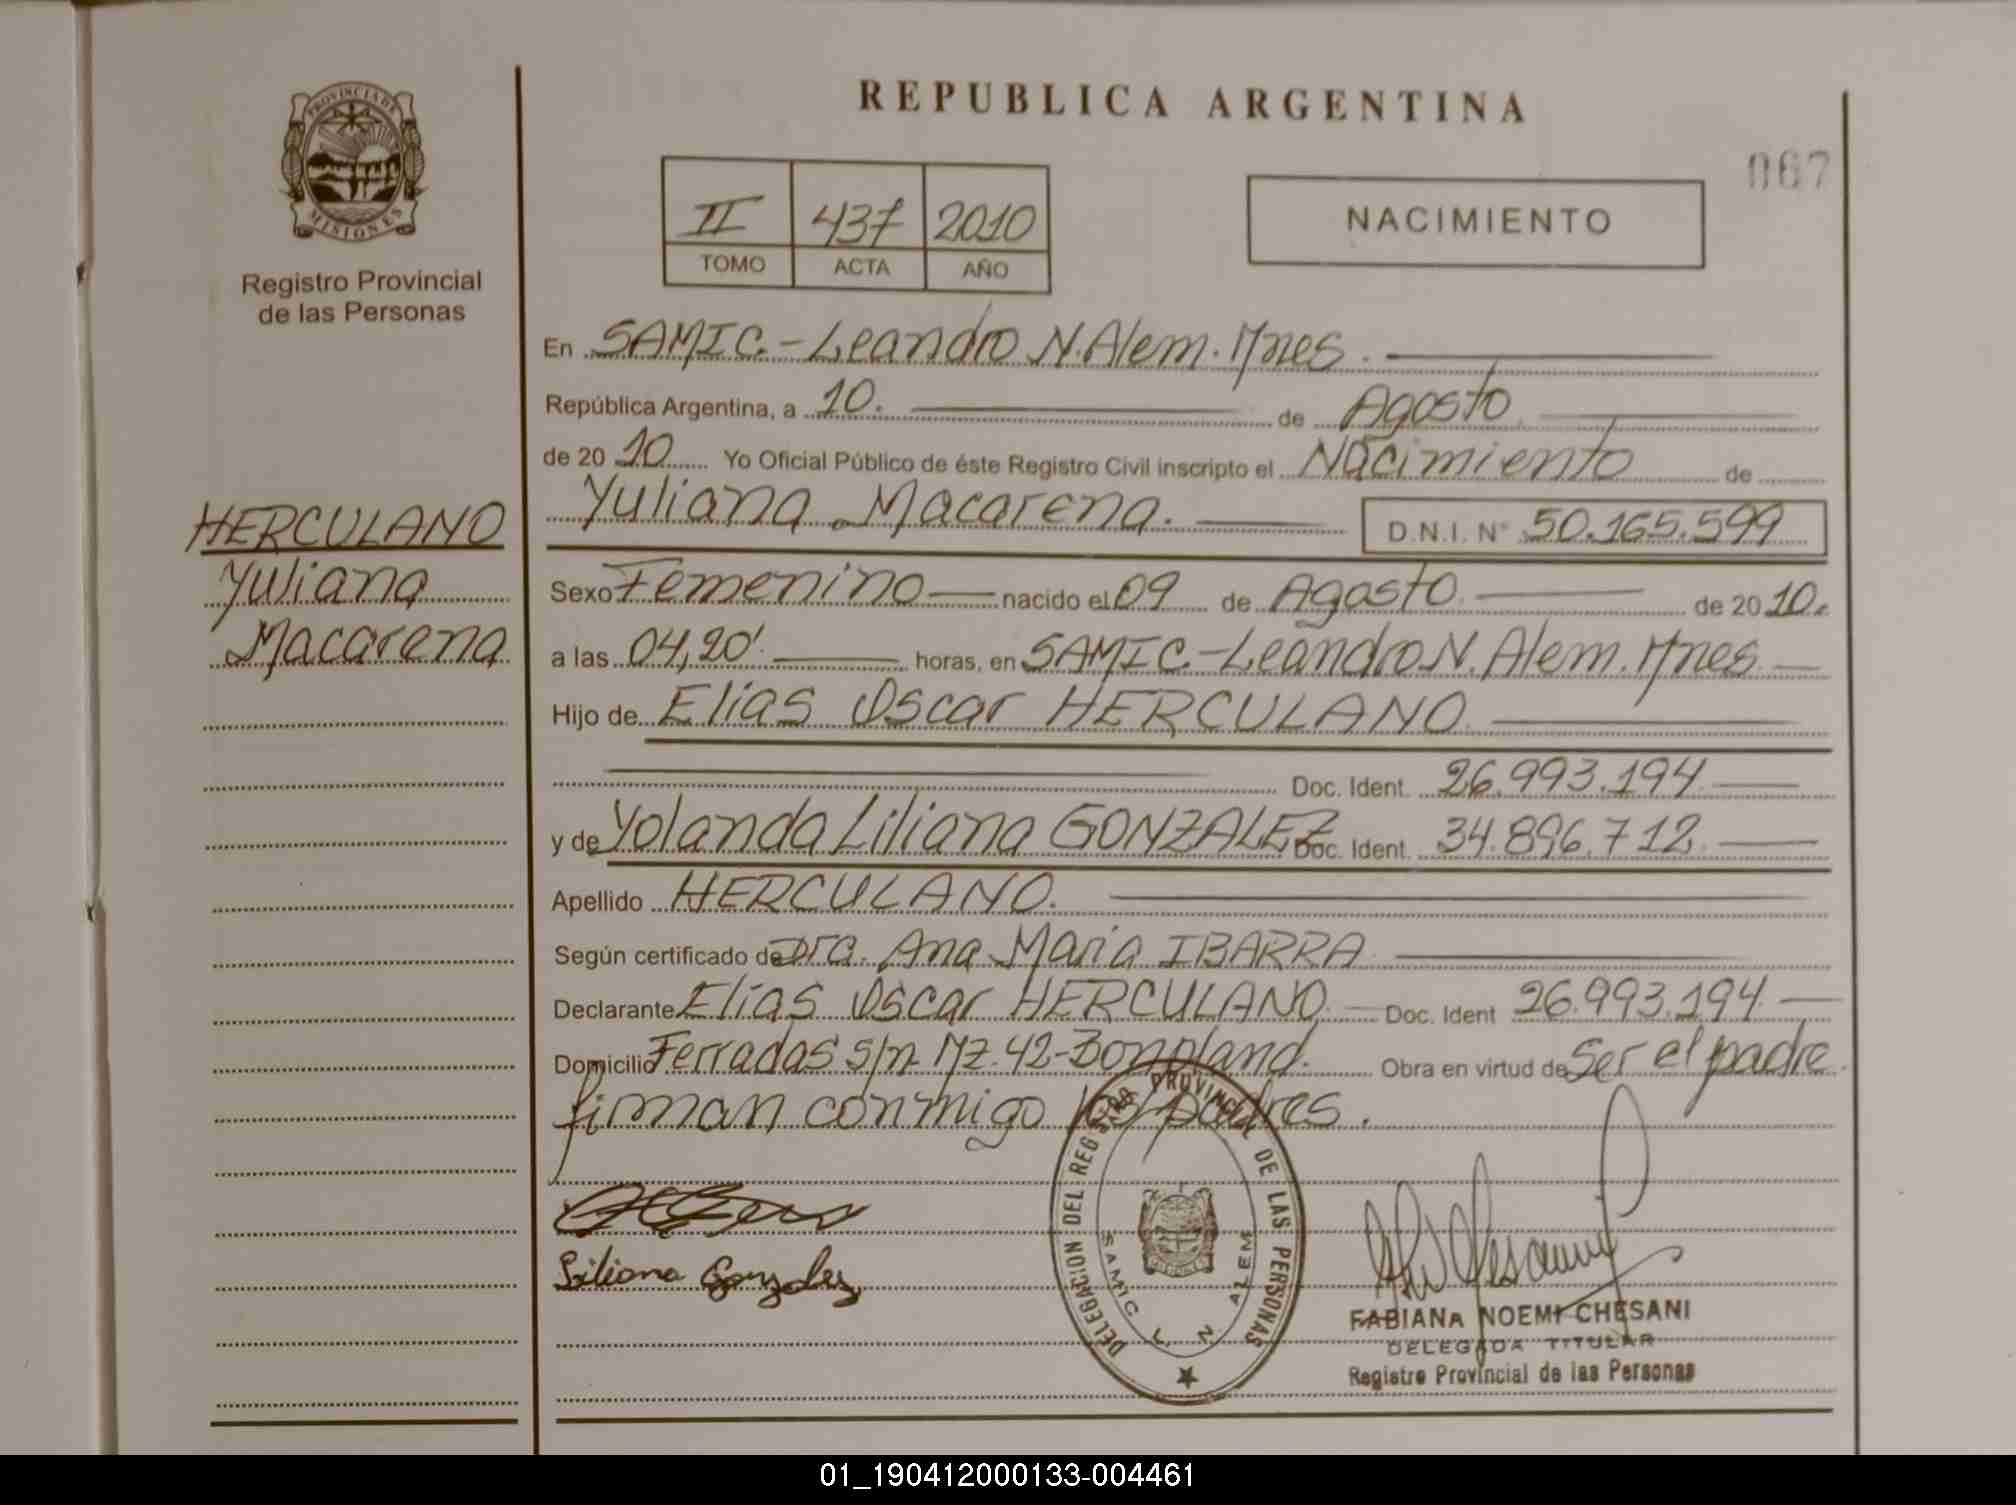 PROVINCIA DE
MISIONES
Registro Provincial
de las Personas
HERCULANO
Yuliana
Macarena
REPUBLICA ARGENTINA
067
II 437 2010
TOMO ACTA AÑO
NACIMIENTO
En SAMIC.-Leandro N. Alem. Mnes.
República Argentina, a 10. de Agosto
de 20 10 Yo Oficial Público de éste Registro Civil inscripto el Nacimiento de
Yuliana Macarena. D.N.I. N° 50.165.599
Sexo Femenino nacido el 09 de Agosto de 20 10.
a las 04,20' horas, en SAMIC.-Leandro N. Alem. Mnes.
Hijo de Elias Oscar HERCULANO.
Doc. Ident. 26.993.194
y de Yolanda Liliana GONZALEZ Doc. Ident. 34.896.712.
Apellido HERCULANO.
Según certificado de Dra. Ana Maria IBARRA
Declarante Elias Oscar HERCULANO. Doc. Ident 26.993.194
Domicilio Ferradas s/n. Mz. 42-Bonpland. Obra en virtud de Ser el padre.
firman conmigo los padres.
Liliana Gonzalez
DELEGACION DEL REGISTRO PROVINCIAL DE LAS PERSONAS
SAMIC L. N. ALEM
FABIANA NOEMI CHESANI
DELEGADA TITULAR
Registro Provincial de las Personas
01_190412000133-004461